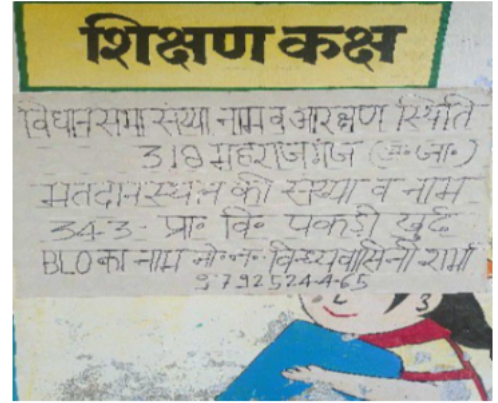 शिक्षण कक्ष
विधानसभा संख्या नाम व आरक्षण स्थिति
318 महराजगंज (अ॰जा॰)
मतदान स्थल की संख्या व नाम
343- प्रा॰ वि॰ पकड़ी खुर्द
BLO का नाम विन्ध्यवासिनी शर्मा